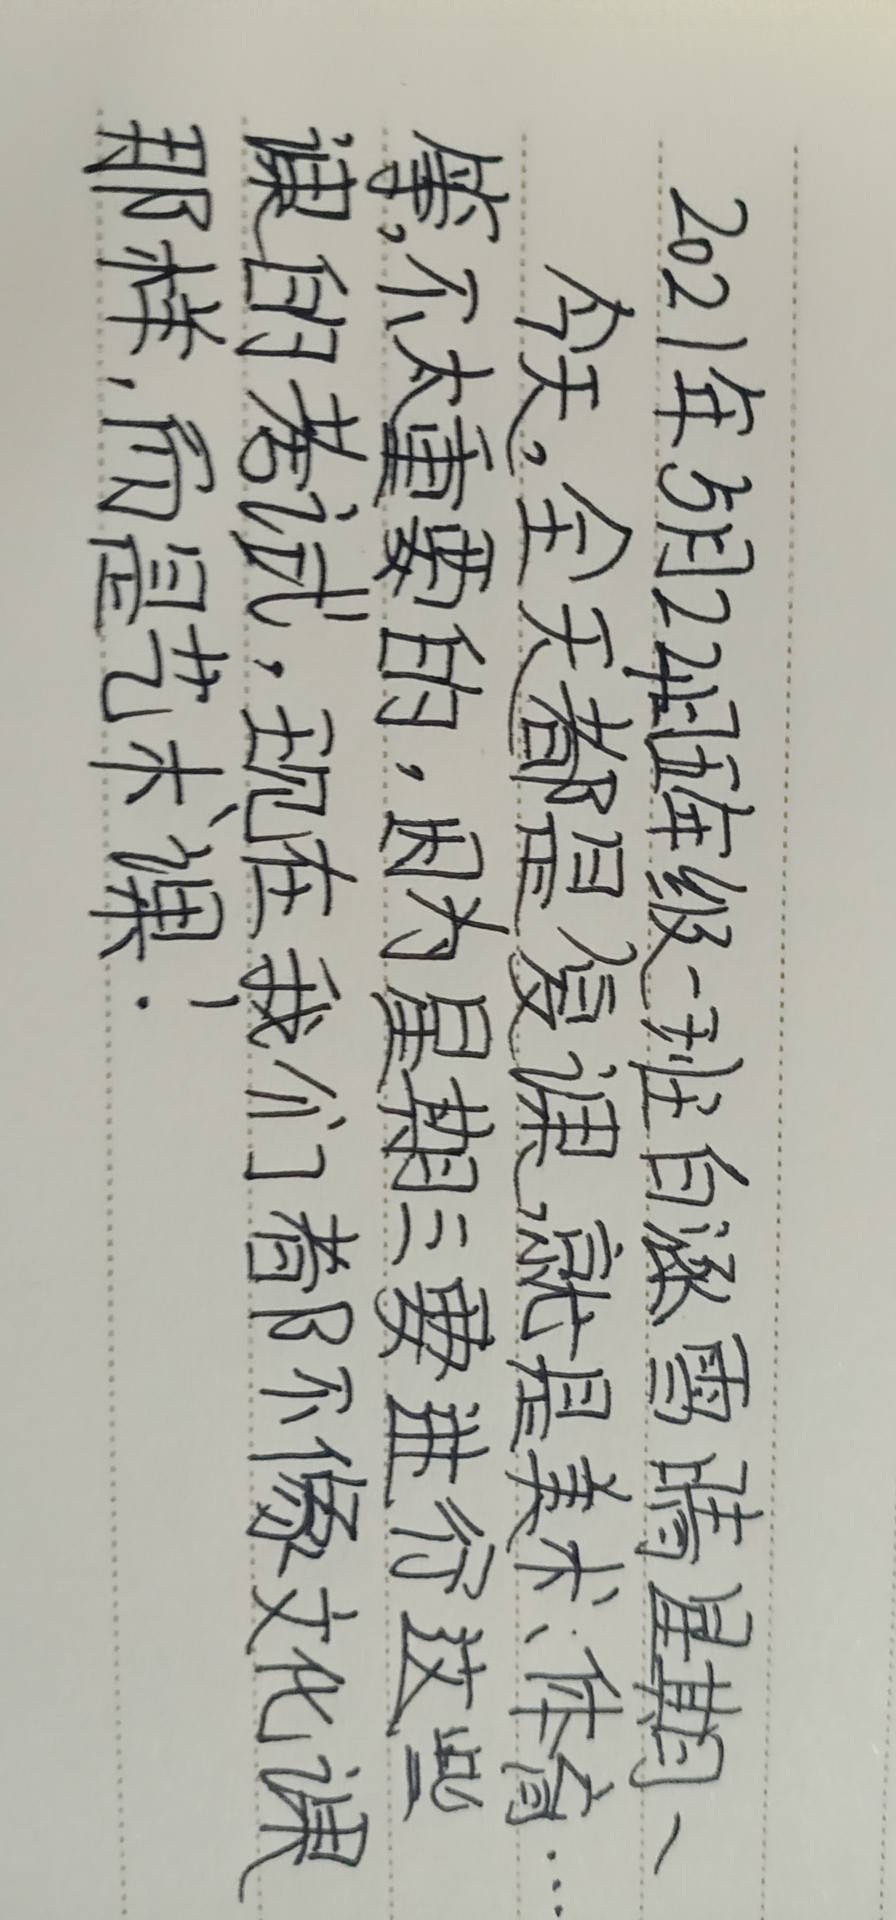 2021年5月24日五年级一班白泺雪 晴 星期一
今天,全天都是复课,就是美术、体育…
等,不太重要的,因为星期三要进行这些
课的考试,现在我们都不像文化课
那样,而是艺术课!